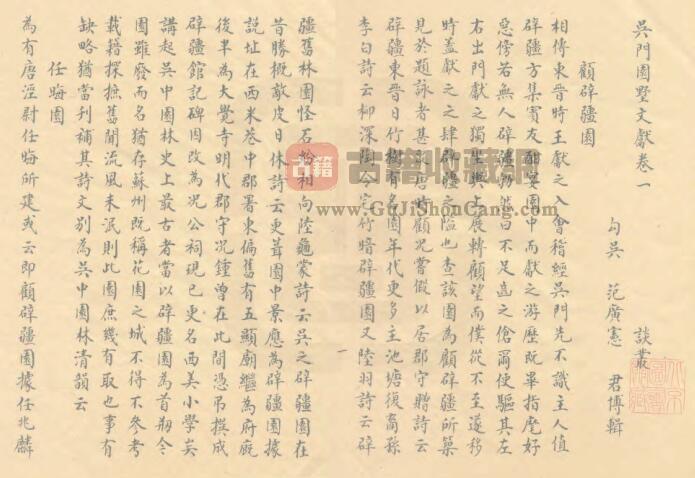 吳門園墅文獻卷一
談叢
勾吳　范廣憲　君博輯
顧辟疆園
相傳東晉時王獻之入會稽經吳門先不識主人值
辟疆方集賓友酣宴園中而獻之游歷既畢指麾好
惡傍若無人辟疆勃然曰不足齒之傖爾使驅其左
右出門獻之獨坐輿上展轉顧望而僕從不至遂移
時蓋獻之之肆辟疆之隘也查該園為顧辟疆所築
見於題詠者甚唐時顧況嘗假以居郡守贈詩云
辟疆東晉日竹樹有名園年代更多主池塘復裔孫
李白詩云柳深陶令宅竹暗辟疆園又陸羽詩云辟
疆舊林園怪石紛相向陸龜蒙詩云吳之辟疆園在
昔勝概敵皮日休詩云更葺園中景應為辟疆園據
說址在西米巷中郡署東偏舊有五顯廟繼為府廨
後半為大覺寺明代郡守況鍾曾在此間憑弔撰成
辟疆館記碑因改為況公祠現已更名西美小學矣
講起吳中園林史上最古者當以辟疆園為首刱今
園雖廢而名猶存蘇州既稱花園之城不得不參考
載籍採撫舊聞流風未泯則此園庶幾有取也事有
缺略猶當刊補其詩文別為吳中園林清韻云
任晦園
為有唐涇尉任晦所建或云即顧辟疆園據任兆麟
一
古籍 古籍收藏网
www.GuJiShouCang.com